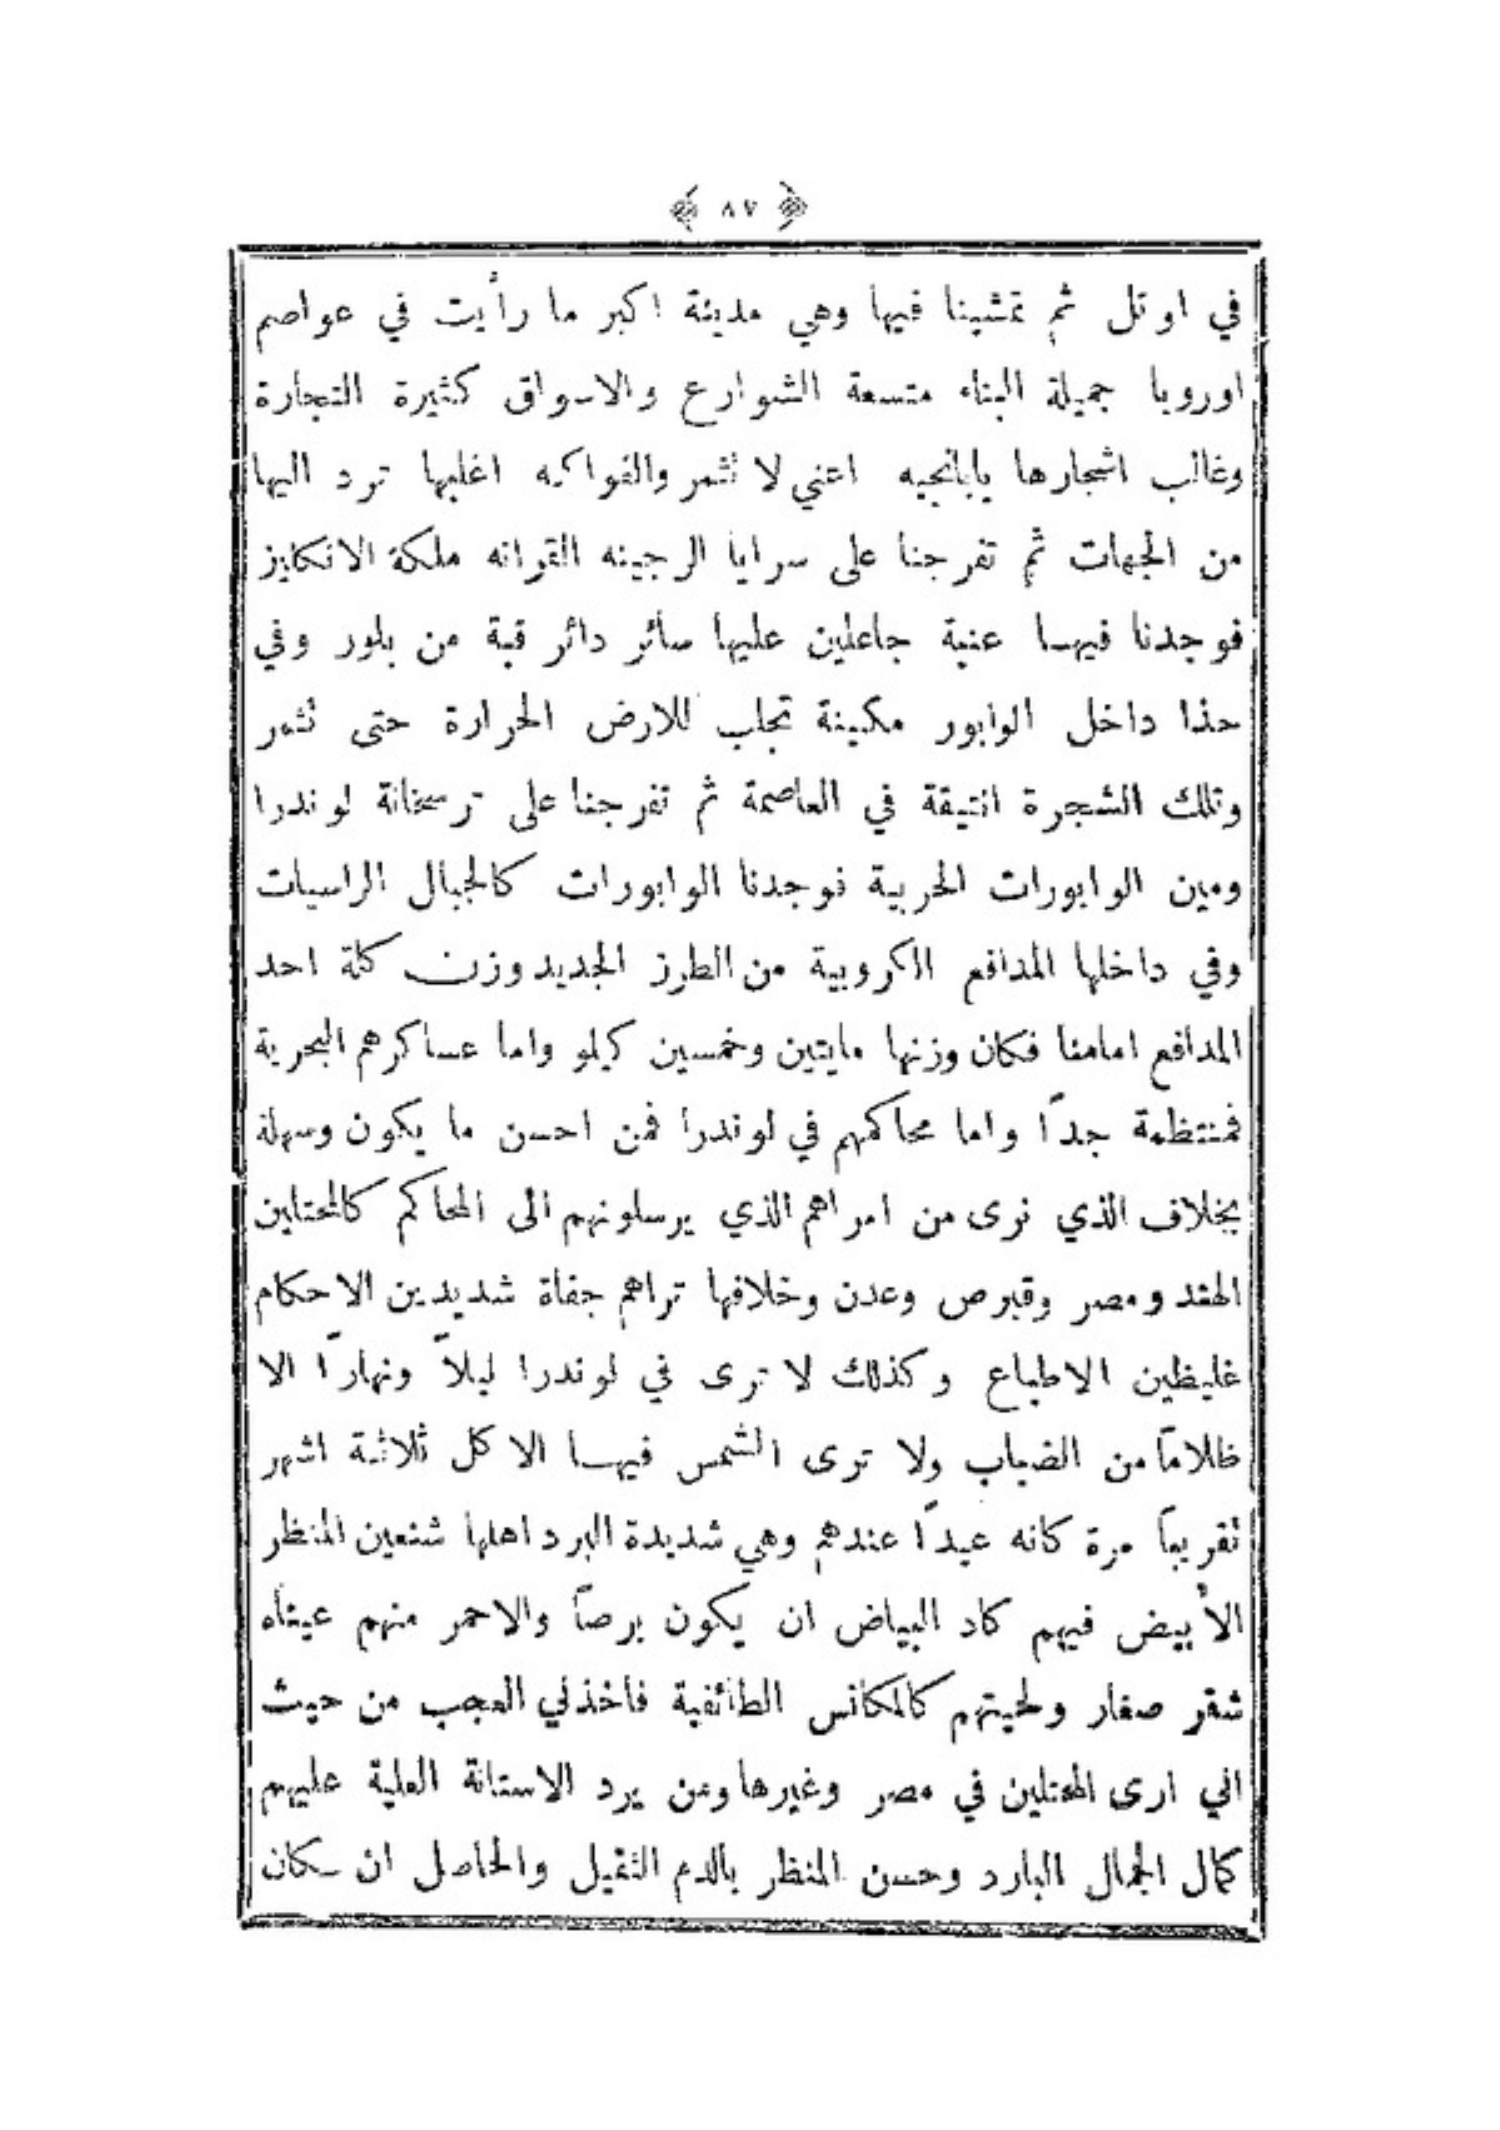 ٨٧
في اوتل ثم تمشينا فيها وهي مدينة اكبر ما رأيت في عواصم
اوروبا جميلة البناء متسعة الشوارع والاسواق كثيرة التجارة
وغالب اشجارها يابانجيه اعني لا تثمر والفواكه اغلبها ترد اليها
من الجهات ثم تفرجنا على سرايا الرجينه القرانه ملكة الانكليز
فوجدنا فيها عنبة جاعلين عليها سائر دائر قبة من بلور وفي
حذا داخل الوابور مكينة تجلب للارض الحرارة حتى تثمر
وتلك الشجرة انتيقة في العاصمة ثم تفرجنا على ترسخانة لوندرا
ومين الوابورات الحربية فوجدنا الوابورات كالجبال الراسيات
وفي داخلها المدافع الكروبية من الطرز الجديد وزن كلة احد
المدافع امامنا فكان وزنها مايتين وخمسين كيلو واما عساكرهم البحرية
فمنتظمة جدًا واما محاكمهم في لوندرا فمن احسن ما يكون وسهلة
بخلاف الذي نرى من امراهم الذي يرسلونهم الى المحاكم كالمحتلين
الهند ومصر وقبرص وعدن وخلافها تراهم جفاة شديدين الاحكام
غليظين الاطباع وكذلك لا ترى في لوندرا ليلاً ونهارًا الا
ظلامًا من الضباب ولا ترى الشمس فيها الا كل ثلاثة اشهر
تقريبًا مرة كانه عيدًا عندهم وهي شديدة البرد اهلها شنعين المنظر
الأبيض فيهم كاد البياض ان يكون برصًا والاحمر منهم عيناه
شقر صغار ولحيتهم كالمكانس الطائفية فأخذني العجب من حيث
اني ارى المحتلين في مصر وغيرها ومن يرد الاستانة العلية عليهم
كمال الجمال البارد وحسن المنظر بالدم الثقيل والحاصل ان سكان